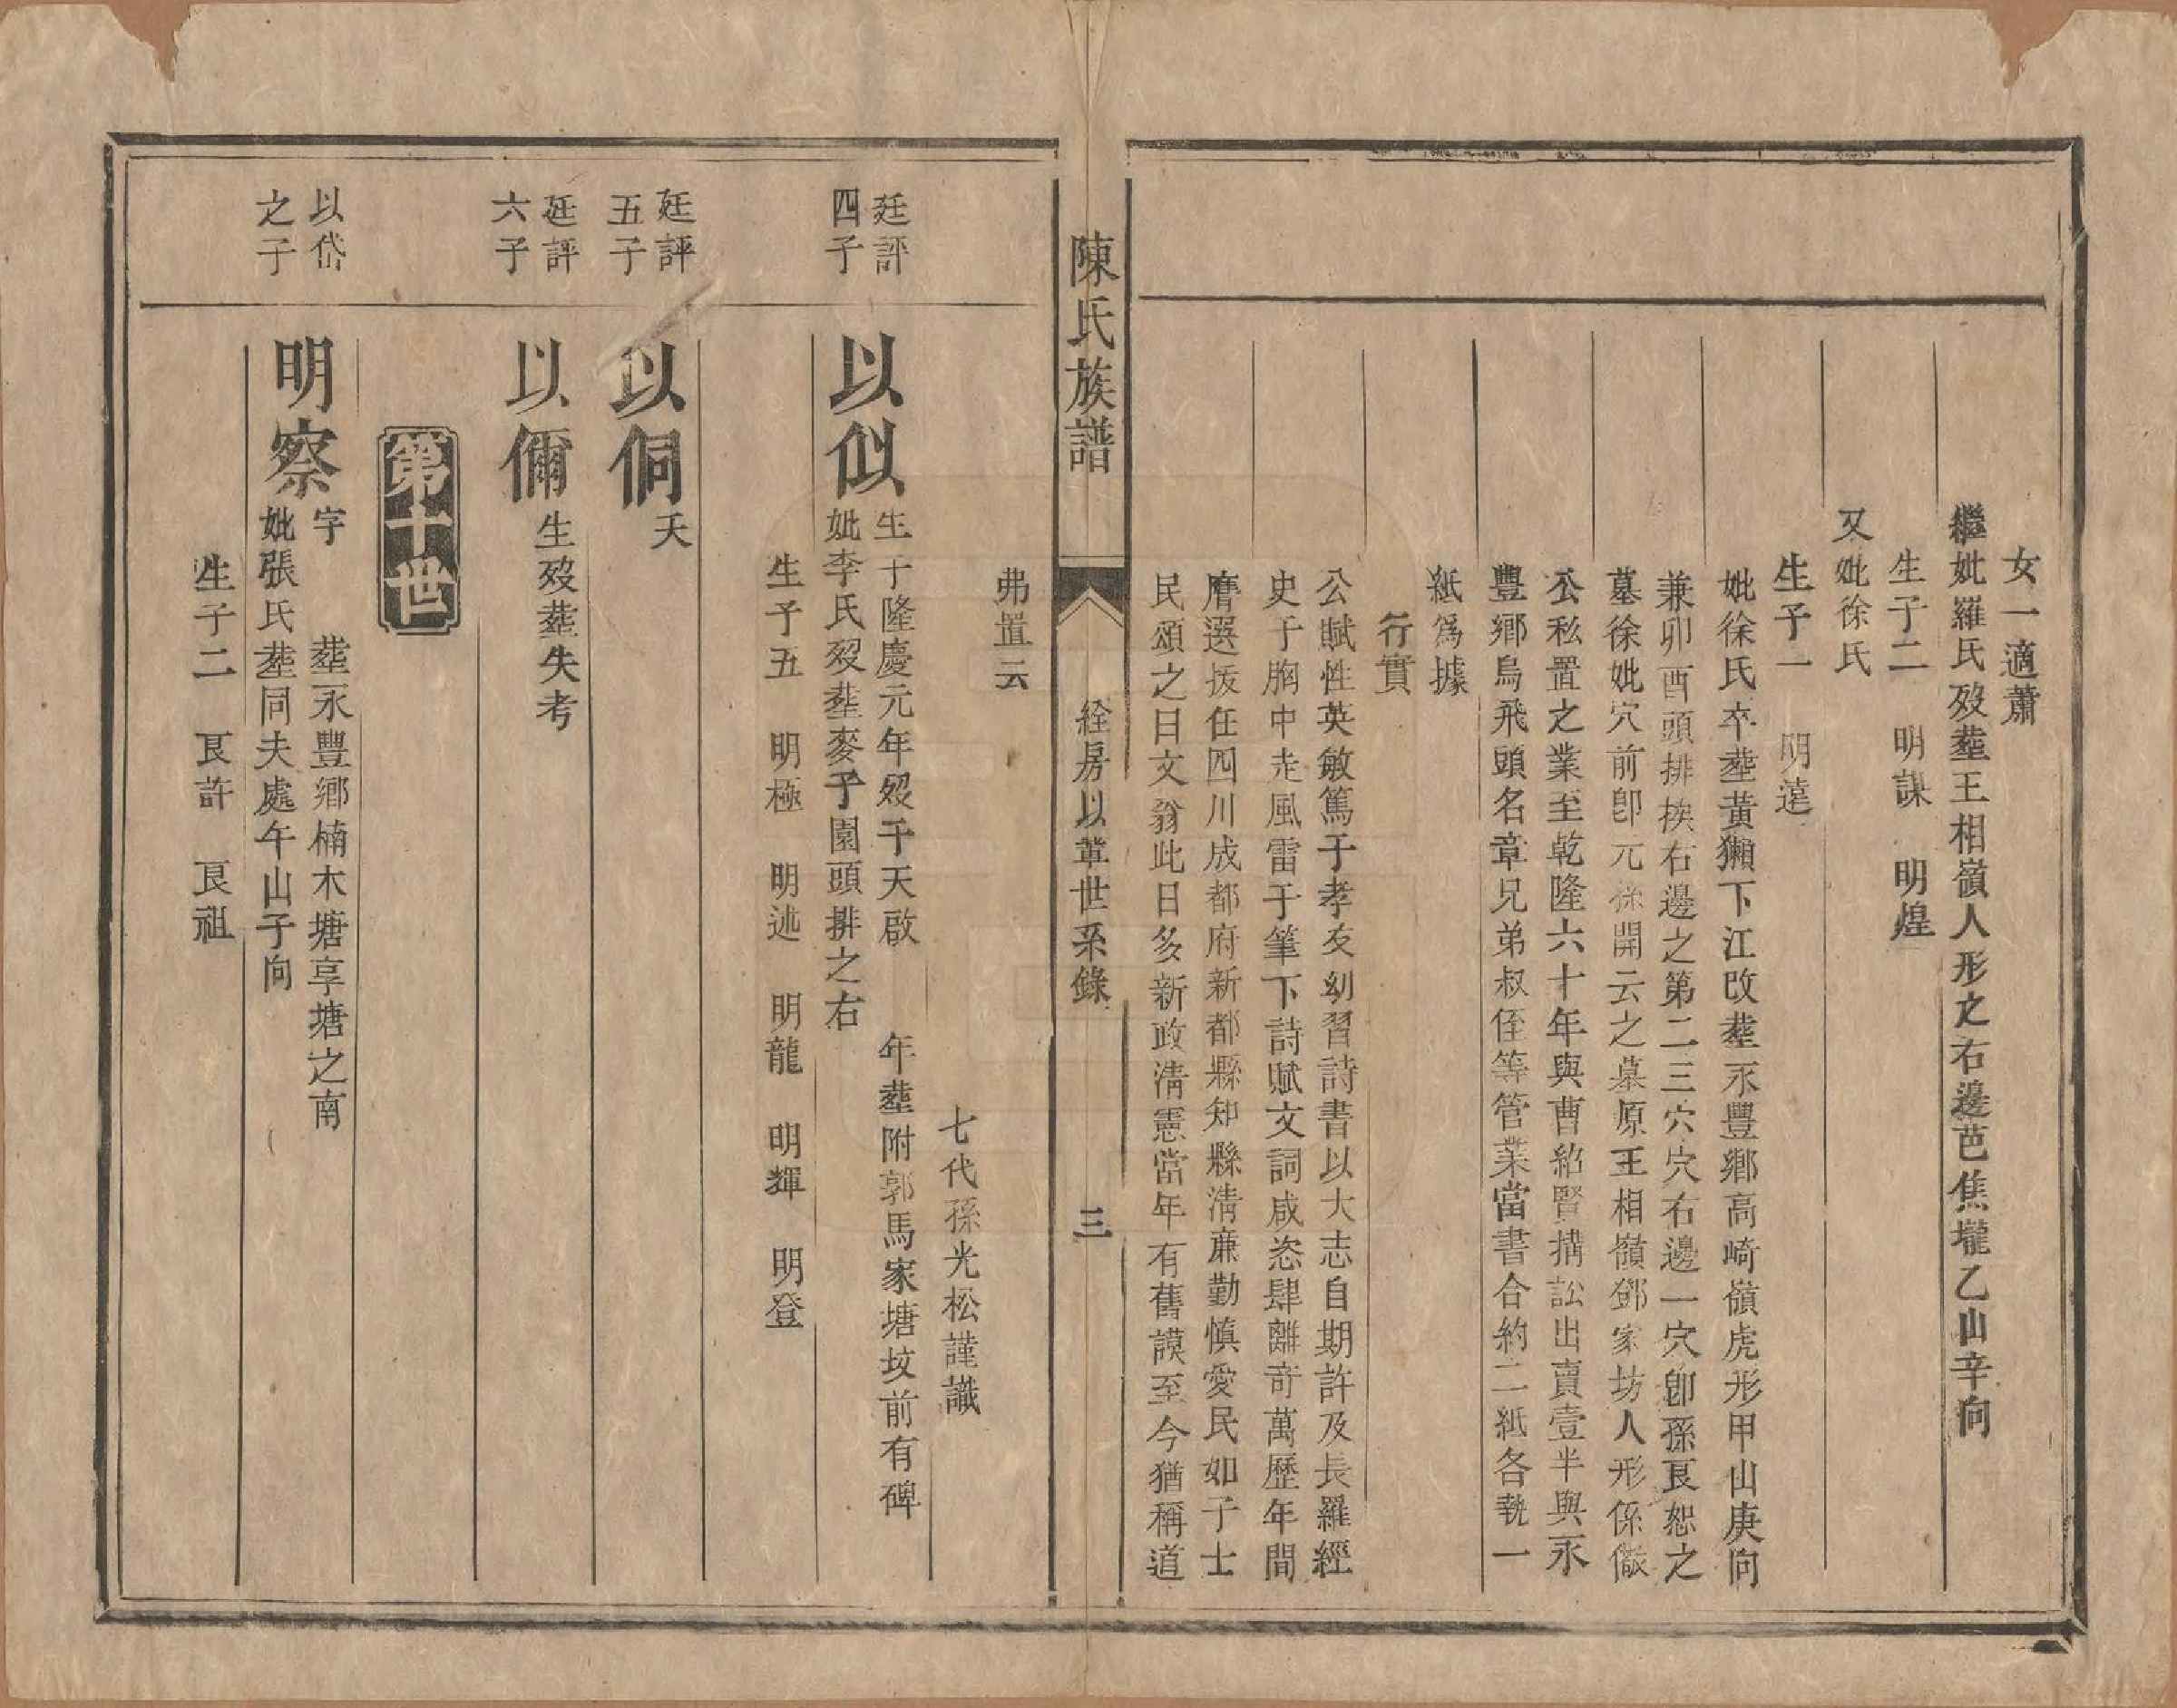 女一適蕭
繼妣羅氏歿塟王相嶺人形之右邊芭焦壠乙山辛向
生子二　明謀　明煌
又妣徐氏
生子一　明達
妣徐氏卒塟黃獺下江改塟永豐鄉高崎嶺虎形甲山庚向
兼卯酉頭排挨右邊之第二三穴穴右邊一穴卽孫艮恕之
墓徐妣穴前卽元孫開云之墓原王相嶺鄧家坊人形係儆
公私置之業至乾隆六十年與曹紹賢搆訟出賣壹半與永
豐鄉烏飛頭名章兄弟叔侄等管業當書合約二紙各執一
紙爲據
行實
公賦性英敏篤于孝友幼習詩書以大志自期許及長羅經
史于胸中走風雷于筆下詩賦文詞咸恣肆離奇萬歷年間
膺選拔任四川成都府新都縣知縣淸亷勤慎愛民如子士
民頌之曰文翁此日多新政淸憲當年有舊謨至今猶稱道
陳氏族譜
絟房以葦世系錄
三
弗置云
七代孫光松謹識
廷評
四子
以似
生于隆慶元年歿于天啟　年塟附郭馬家塘坟前有碑
妣李氏歿塟麥子園頭排之右
生子五　明極　明述　明龍　明輝　明登
廷評
五子
以侗
夭
廷評
六子
以儞
生歿塟失考
第十世
以岱
之子
明察
字　塟永豐鄉楠木塘享塘之南
妣張氏塟同夫處午山子向
生子二　艮許　艮祖